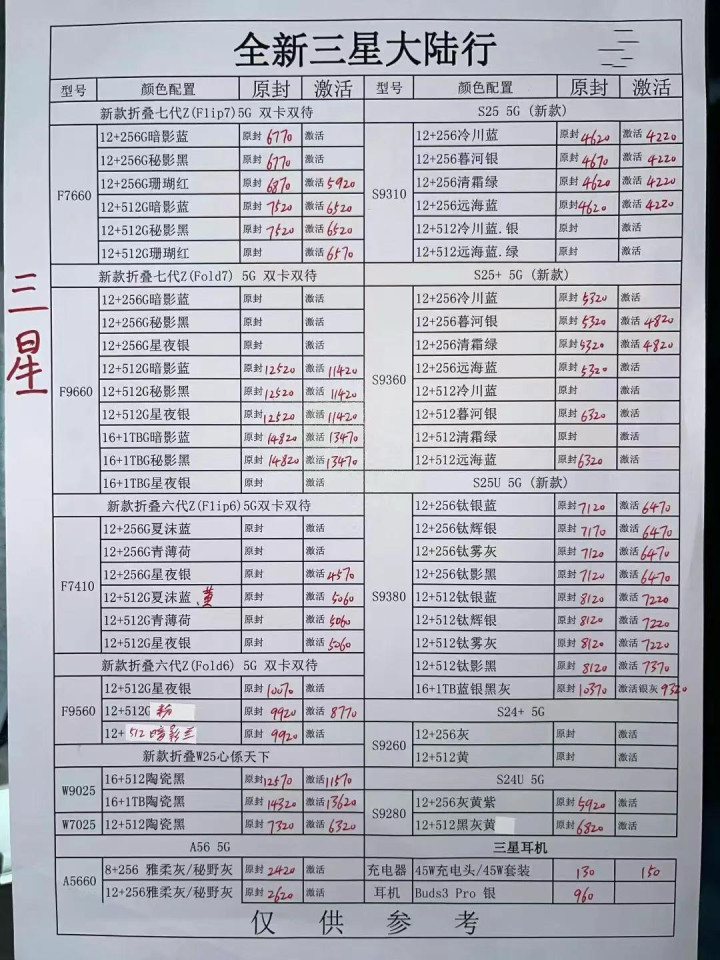 全新三星大陆行
型号 颜色配置 原封 激活 型号 颜色配置 原封 激活
三星
新款折叠七代Z(Flip7)5G 双卡双待
F7660
12+256G暗影蓝 原封 6770 激活
12+256G秘影黑 原封 6770 激活
12+256G珊瑚红 原封 6870 激活 5920
12+512G暗影蓝 原封 7520 激活 6520
12+512G秘影黑 原封 7520 激活 6520
12+512G珊瑚红 原封 激活 6570
新款折叠七代Z(Fold7) 5G 双卡双待
F9660
12+256G暗影蓝 原封 激活
12+256G秘影黑 原封 激活
12+256G星夜银 原封 激活
12+512G暗影蓝 原封 12520 激活 11420
12+512G秘影黑 原封 12520 激活 11420
12+512G星夜银 原封 12520 激活 11420
16+1TBG暗影蓝 原封 14820 激活 13470
16+1TBG秘影黑 原封 14820 激活 13470
16+1TBG星夜银 原封 激活
新款折叠六代Z(Flip6)5G双卡双待
F7410
12+256G夏沫蓝 原封 激活
12+256G青薄荷 原封 激活
12+256G星夜银 原封 激活 4570
12+512G夏沫蓝.黄 原封 激活 5060
12+512G青薄荷 原封 激活 5060
12+512G星夜银 原封 激活 5060
新款折叠六代Z(Fold6) 5G 双卡双待
F9560
12+512G星夜银 原封 10070 激活
12+512G 粉 原封 9920 激活 8770
12+ 512暗影兰 原封 9920 激活
新款折叠W25心係天下
W9025
16+512陶瓷黑 原封 12570 激活 11570
16+1TB陶瓷黑 原封 14320 激活 13620
W7025 12+512陶瓷黑 原封 7320 激活 6320
A56 5G
A5660
8+256 雅柔灰/秘野灰 原封 2420 激活
12+256雅柔灰/秘野灰 原封 2620 激活
S25 5G (新款)
S9310
12+256冷川蓝 原封 4620 激活 4220
12+256暮河银 原封 4670 激活 4220
12+256清霜绿 原封 4620 激活 4220
12+256远海蓝 原封 4620 激活 4220
12+512冷川蓝.银 原封 激活
12+512远海蓝.绿 原封 激活
S25+ 5G (新款)
S9360
12+256冷川蓝 原封 5320 激活
12+256暮河银 原封 5320 激活 4820
12+256清霜绿 原封 5320 激活 4820
12+256远海蓝 原封 5320 激活
12+512冷川蓝 原封 激活
12+512暮河银 原封 6320 激活
12+512清霜绿 原封 激活
12+512远海蓝 原封 6320 激活
S25U 5G (新款)
S9380
12+256钛银蓝 原封 7120 激活 6470
12+256钛辉银 原封 7170 激活 6470
12+256钛雾灰 原封 7120 激活 6470
12+256钛影黑 原封 7120 激活 6470
12+512钛银蓝 原封 8120 激活 7220
12+512钛辉银 原封 8120 激活 7220
12+512钛雾灰 原封 8120 激活 7220
12+512钛影黑 原封 8120 激活 7370
16+1TB蓝银黑灰 原封 10370 激活银灰 9320
S24+ 5G
S9260
12+256灰 原封 激活
12+512黄 原封 激活
S24U 5G
S9280
12+256灰黄紫 原封 5920 激活
12+512黑灰黄 原封 6820 激活
三星耳机
充电器 45W充电头/45W套装 130 150
耳机 Buds3 Pro 银 960
仅供参考